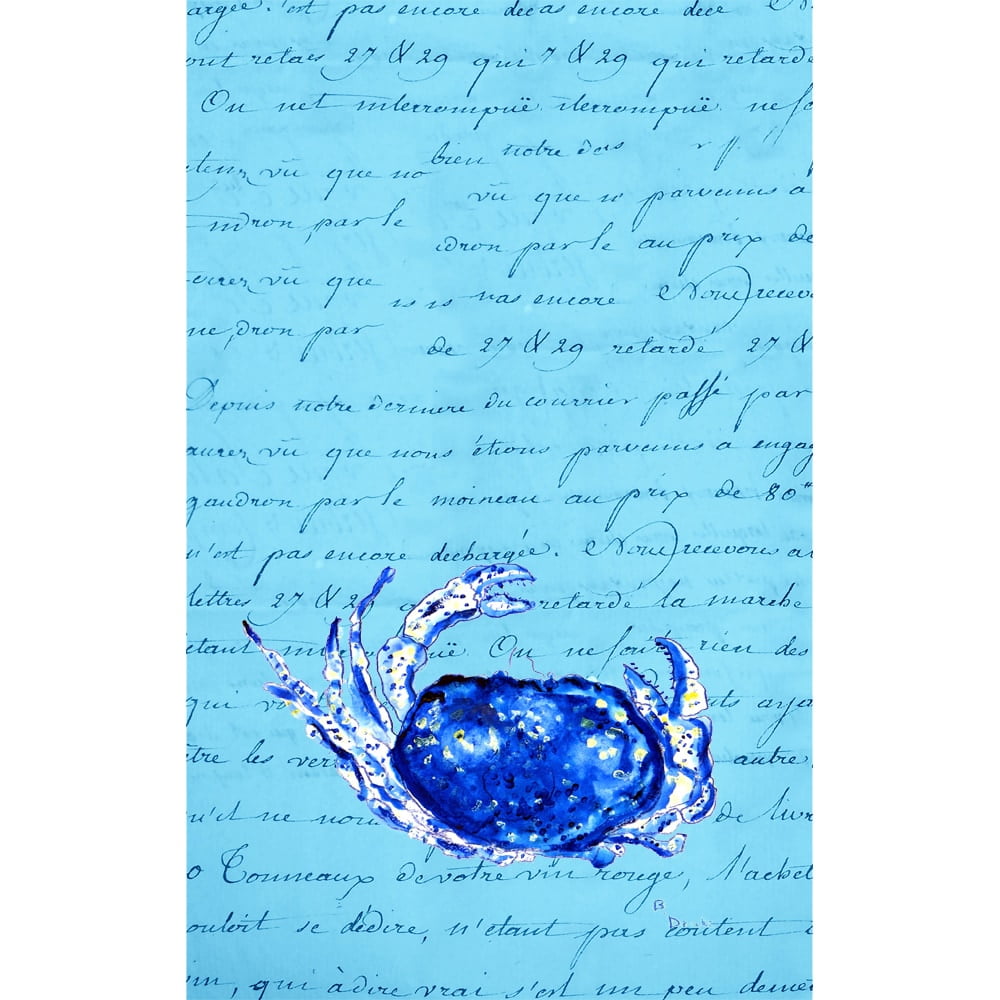 argée. 'ent pas encore dec as encore dece
ont retaes 27 & 29 qui 7 & 29 qui retarde
On net interrompuë. iterrompuë. ne fo
bien notre das
tenz vü que no
vü que no parvenus a
ndron, par le
dron par le au prix de
aurez vü que
is is nas encore Nous recevo
ne, dron par
de 27 & 29 retardé 27 &
Depuis notre derniere du courrier passé par
aurez vü que nous étions parvenus a engag
gaudron par le moineau au prix de 80
n'ent pas encore dechargée. Nous recevons a
lettres 27 & 29 retardé la marche
etant uë. On ne fait rien des
qui ts aya
tre les ver autre
qu'il ne nou de livr
0 Tonneaux de votre vin rouge, l'achet
ouloit se dédire, n'etant pas content
im, qui à dire vrai s'est un peu demé